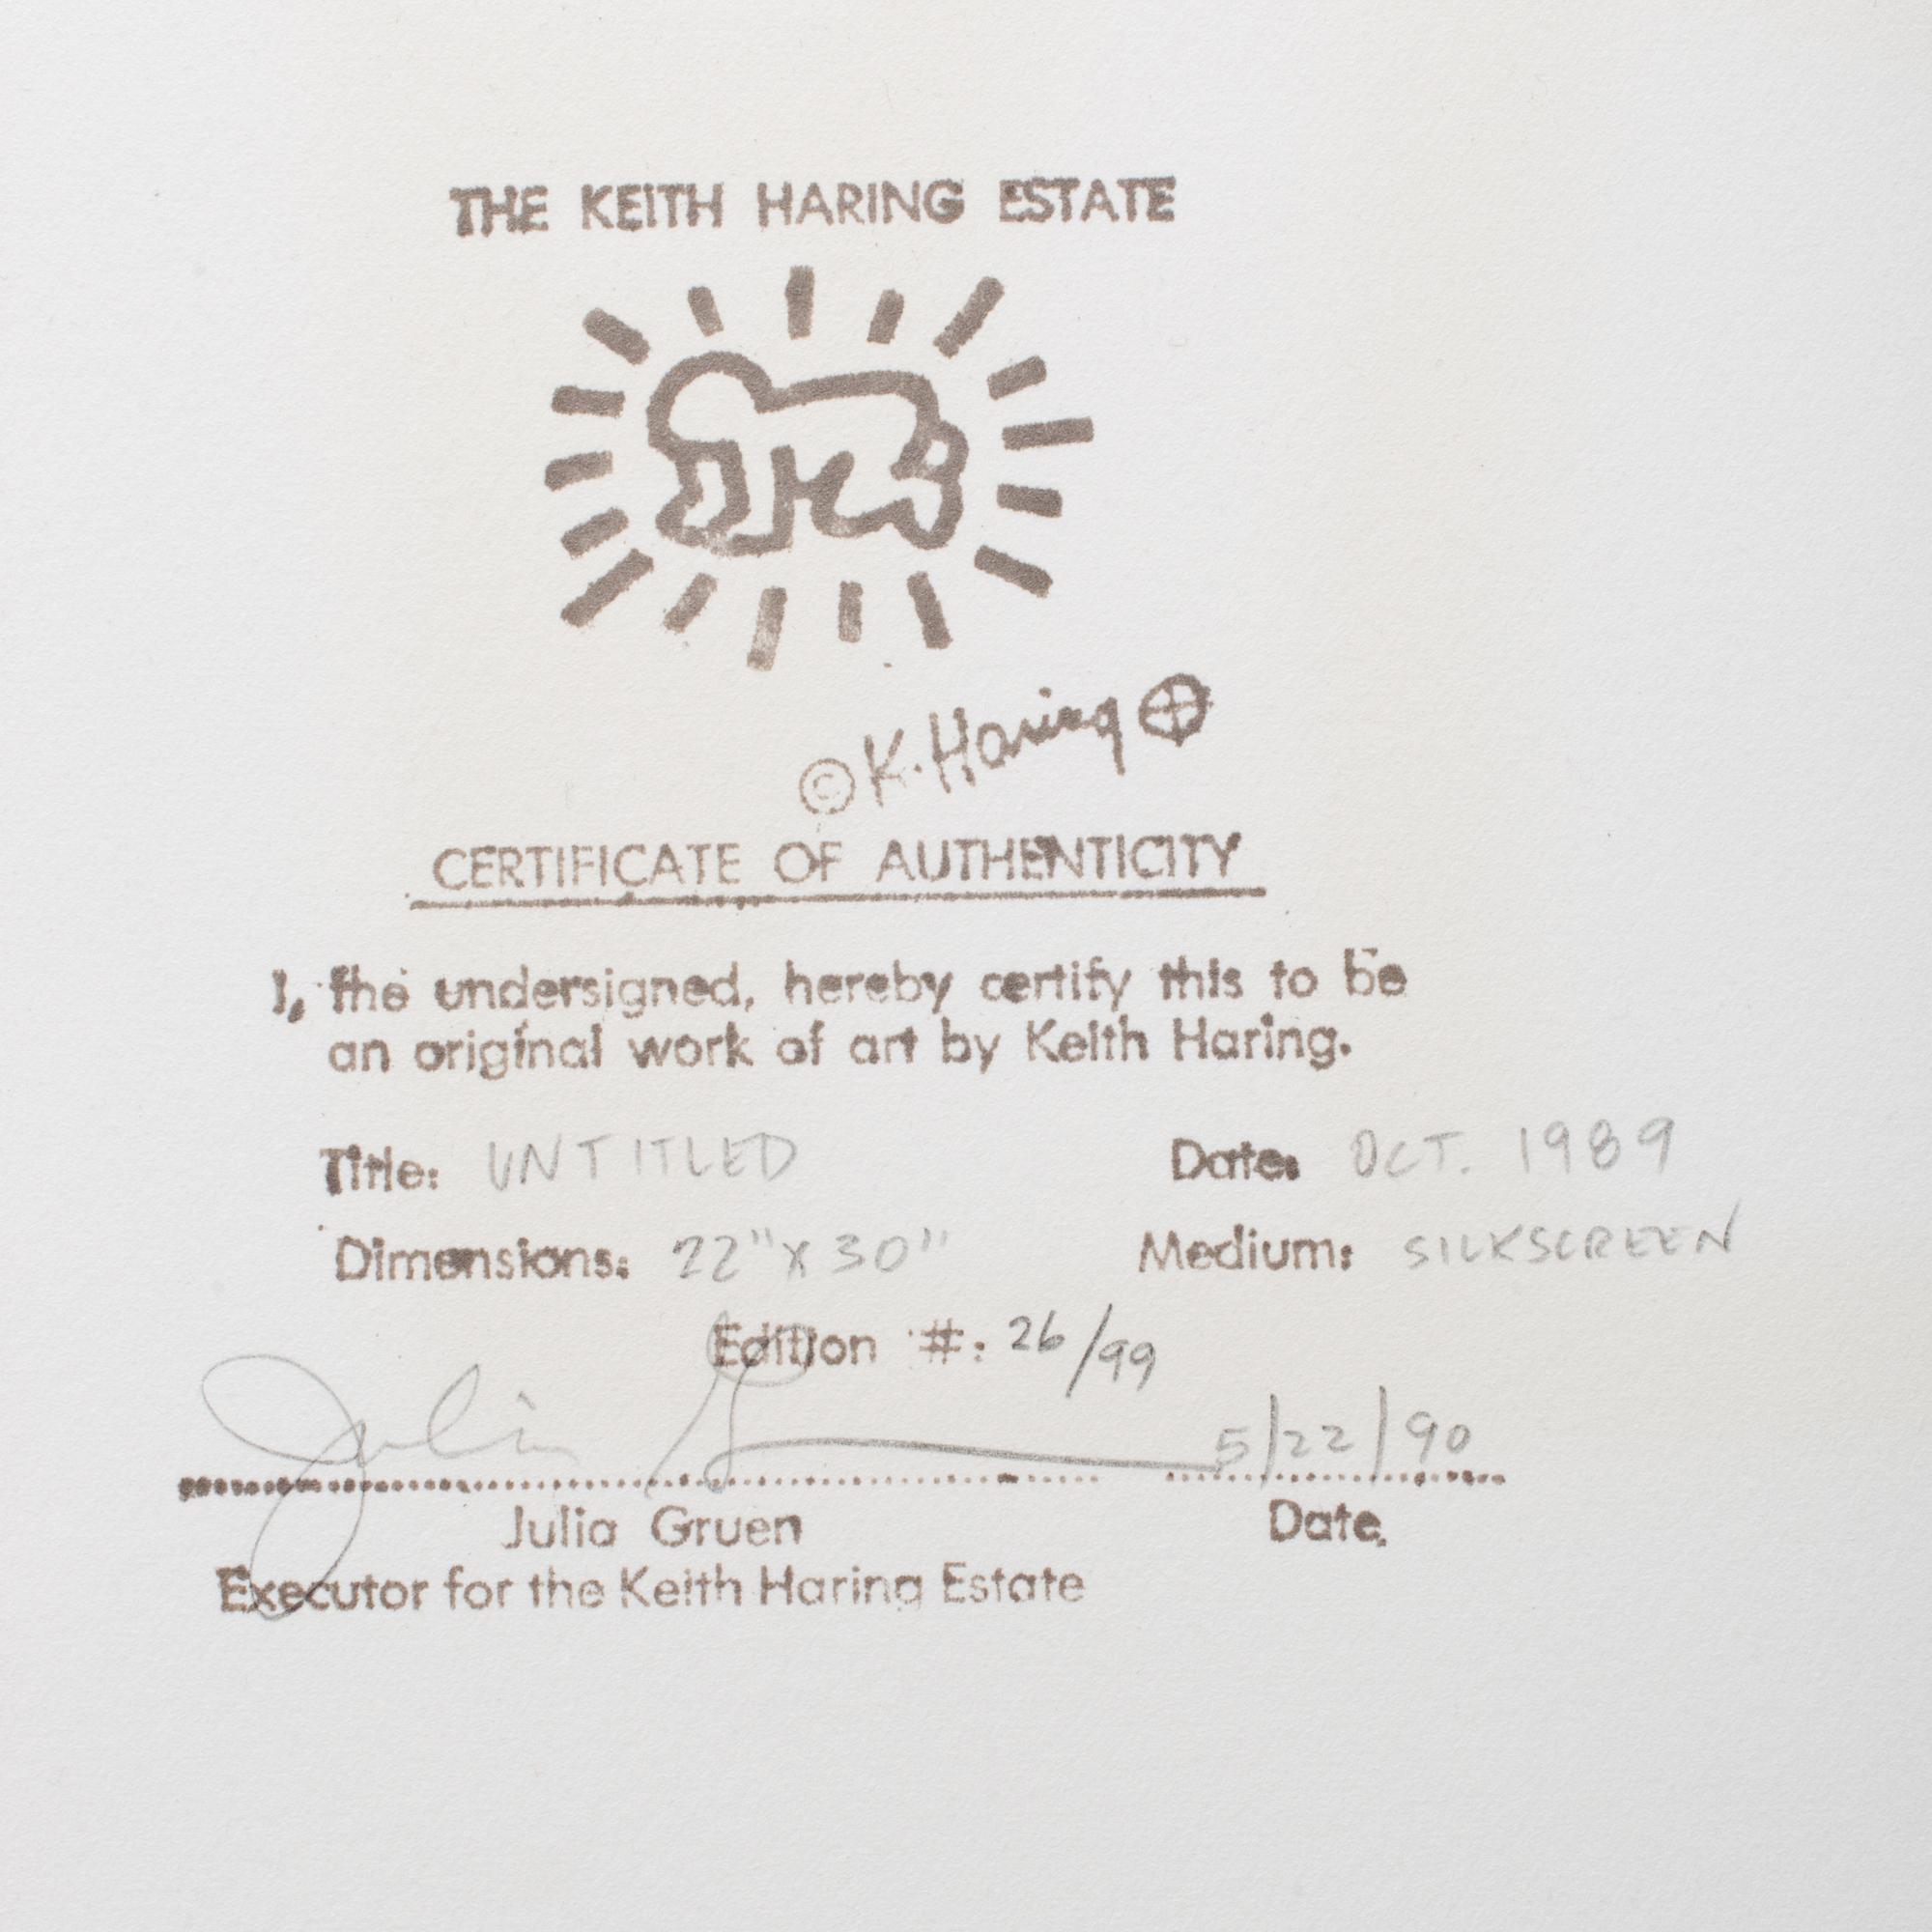 THE KEITH HARING ESTATE
© K. Haring ⊕
CERTIFICATE OF AUTHENTICITY
I, the undersigned, hereby certify this to be
an original work of art by Keith Haring.
Title: UNTITLED Date: OCT. 1989
Dimensions: 22" x 30" Medium: SILKSCREEN
Edition #: 26/99
Julia G 5/22/90
Julia Gruen Date
Executor for the Keith Haring Estate